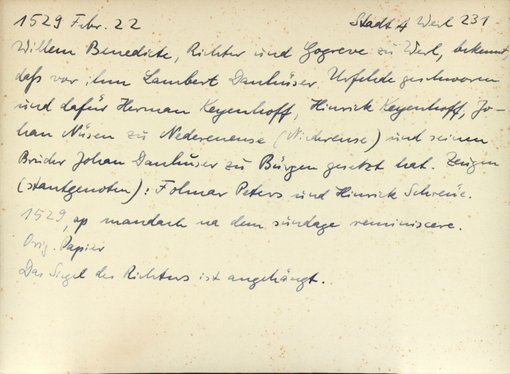 1529 Febr. 22 Stadt A Werl 231
Willem Benedicte, Richter und Gogreve zu Werl, bekennt,
daß vor ihm Lambert Danhüser Urfehde geschworen
und dafür Herman Keyenhoff, Hinrick Keyenhoff, Jo-
han Nüsen zu Nederenense (Niederense) und seinen
Bruder Johan Danhüser zu Bürgen gesetzt hat. Zeugen
(stantgenoten): Folmar Peters und Hinrick Schreue.
1529, op mandach na dem sundage reminiscere.
Orig. Papier
Das Siegel des Richters ist angehängt.